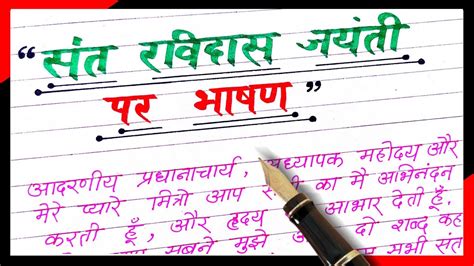 “संत रविदास जयंती
पर भाषण”
आदरणीय प्रधानाचार्य, अध्यापक महोदय और
मेरे प्यारे मित्रो आप का मै अभिनंदन
करती हूँ, और हृदय आभार देती हूँ.
सबने मुझे दो शब्द कह
सभी संत